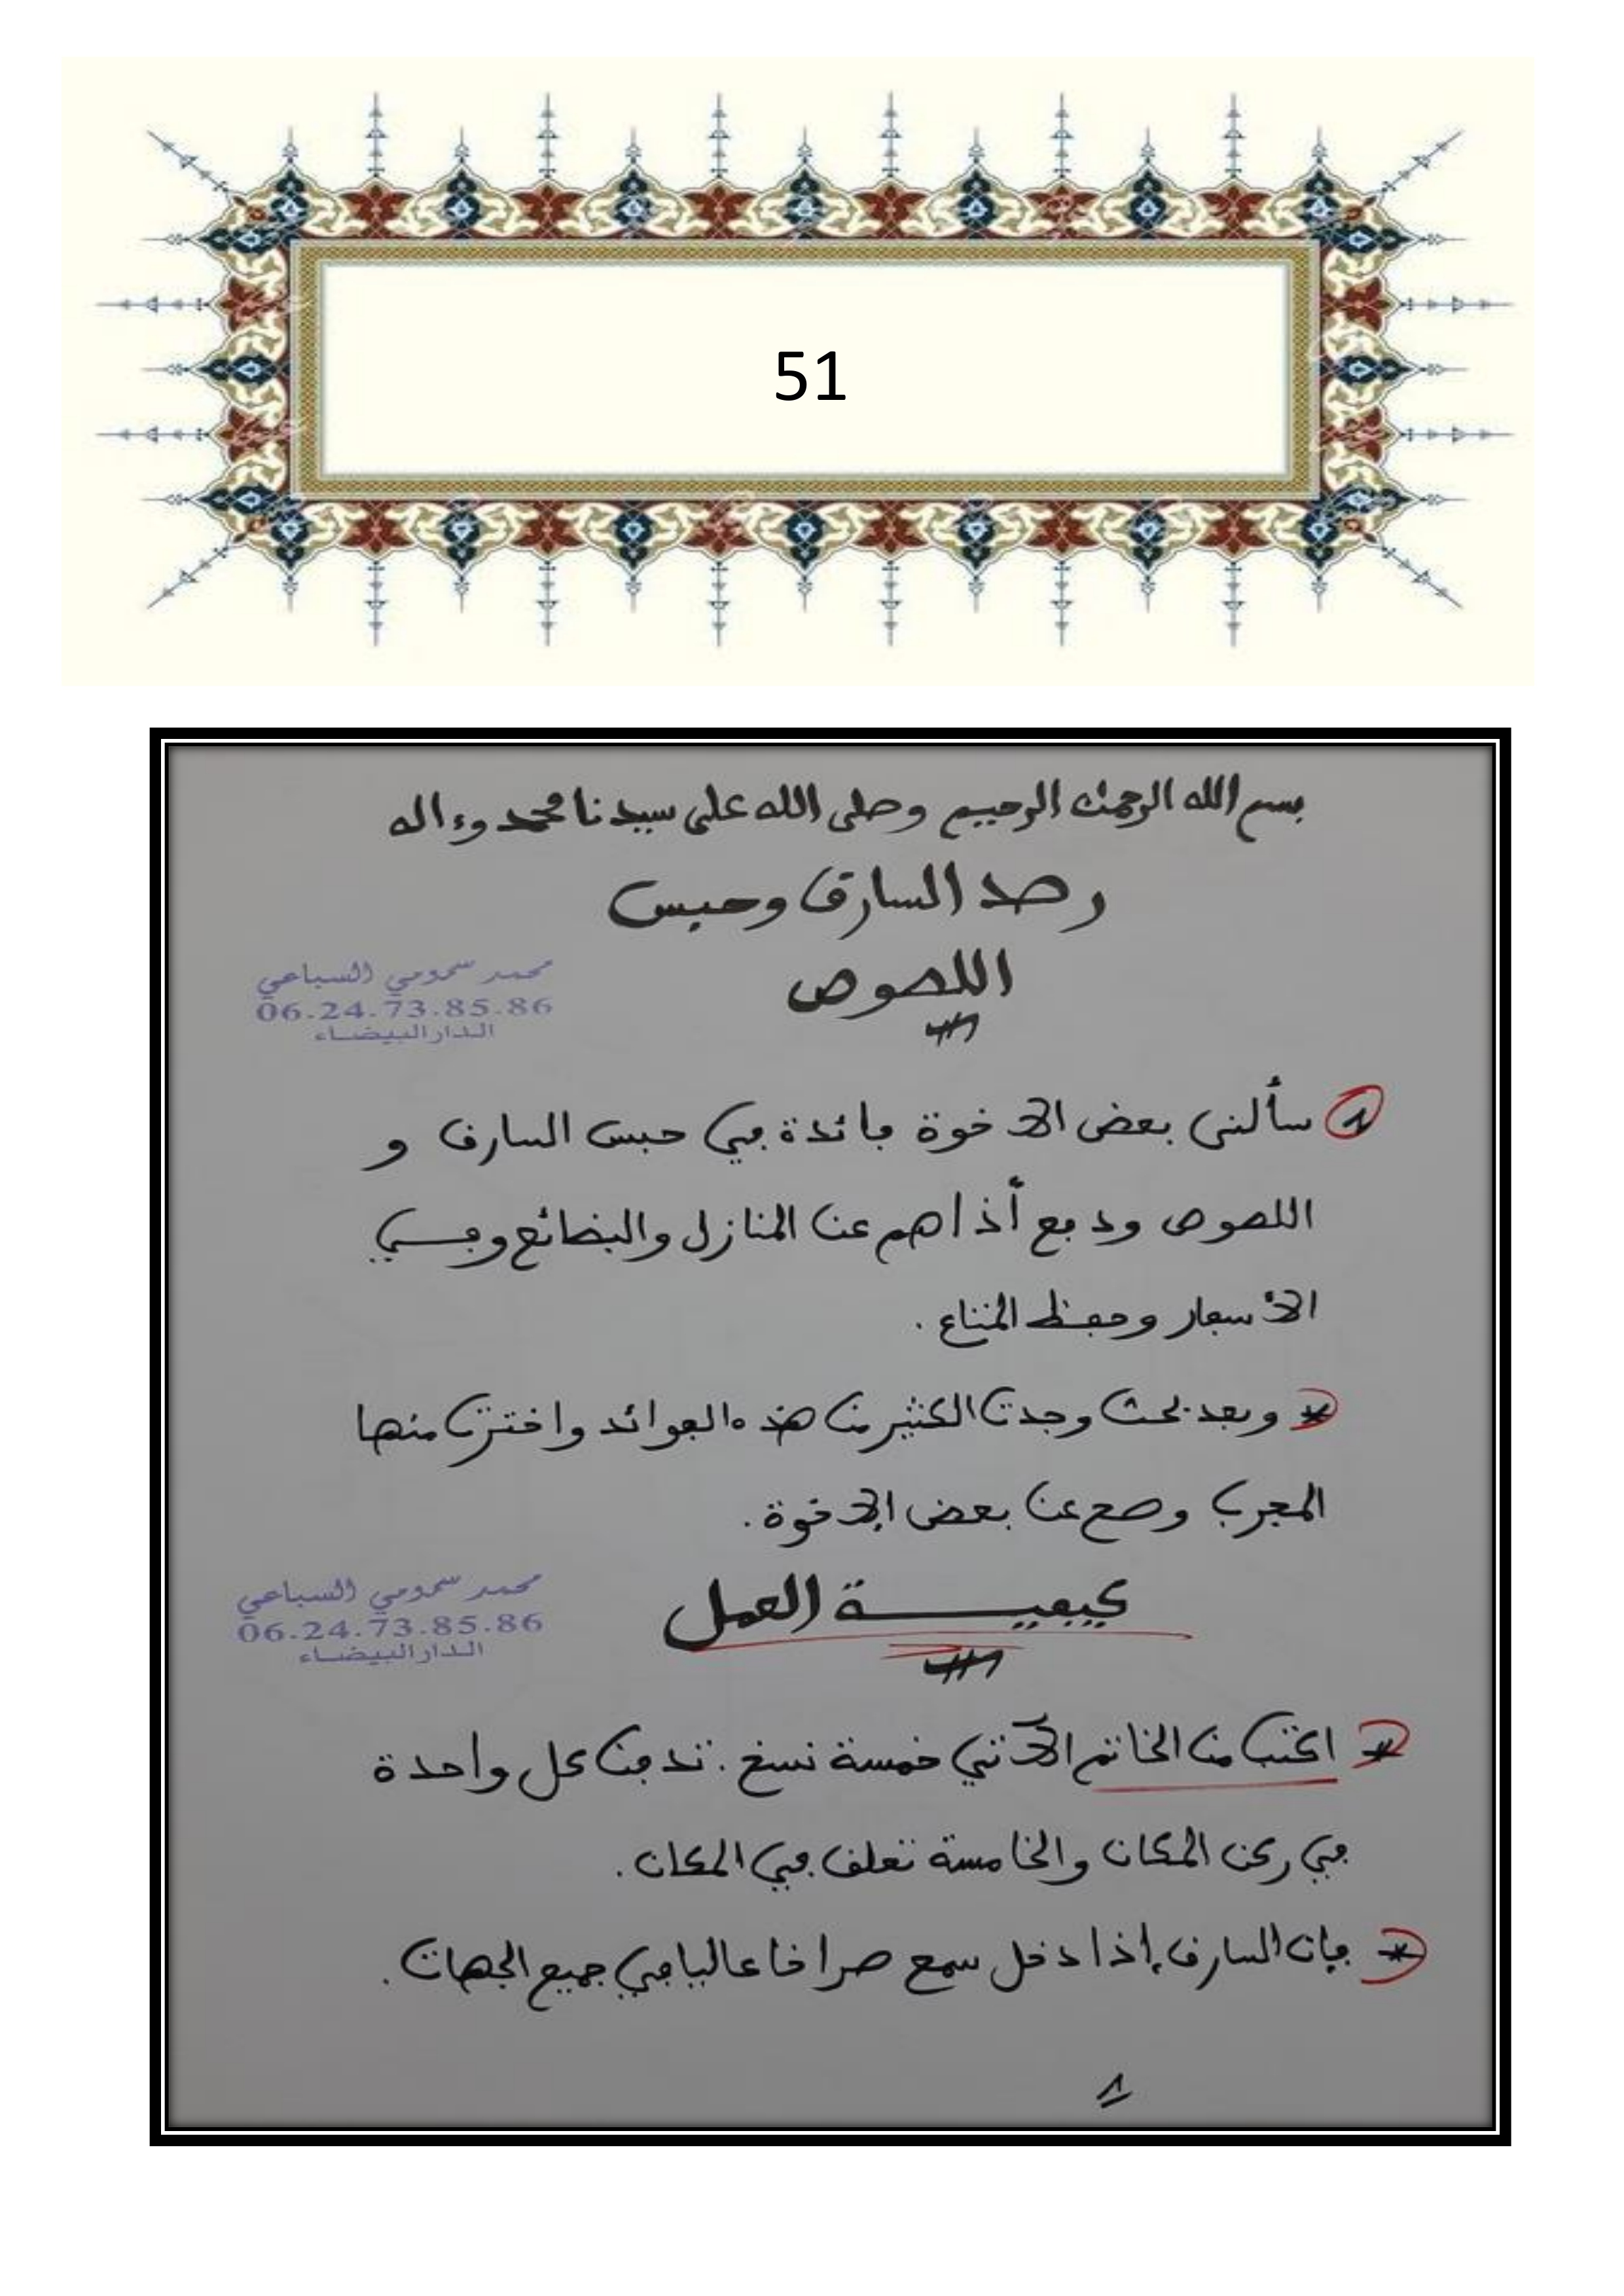 51
بسم الله الرحمن الرحيم وصلى الله على سيدنا محمد وءاله
رصد السارق وحبس
اللصوص
محمد سمومي السباعي
06.24.73.85.86
الدار البيضاء
1 سألني بعض الإخوة فائدة في حبس السارق و
اللصوص ودفع أذاهم عن المنازل والبضائع وفي
الأسفار وحفظ المتاع .
* وبعد بحث وجدت الكثير من هذه الفوائد واخترت منها
المجرب وصح عن بعض الإخوة .
محمد سمومي السباعي
06.24.73.85.86
الدار البيضاء
كيفية العمل
* اكتب من الخاتم الآتي خمسة نسخ . تدفن كل واحدة
في ركن المكان والخامسة تعلق في المكان .
* فإن السارق إذا دخل سمع صراخا عاليا في جميع الجهات .
1